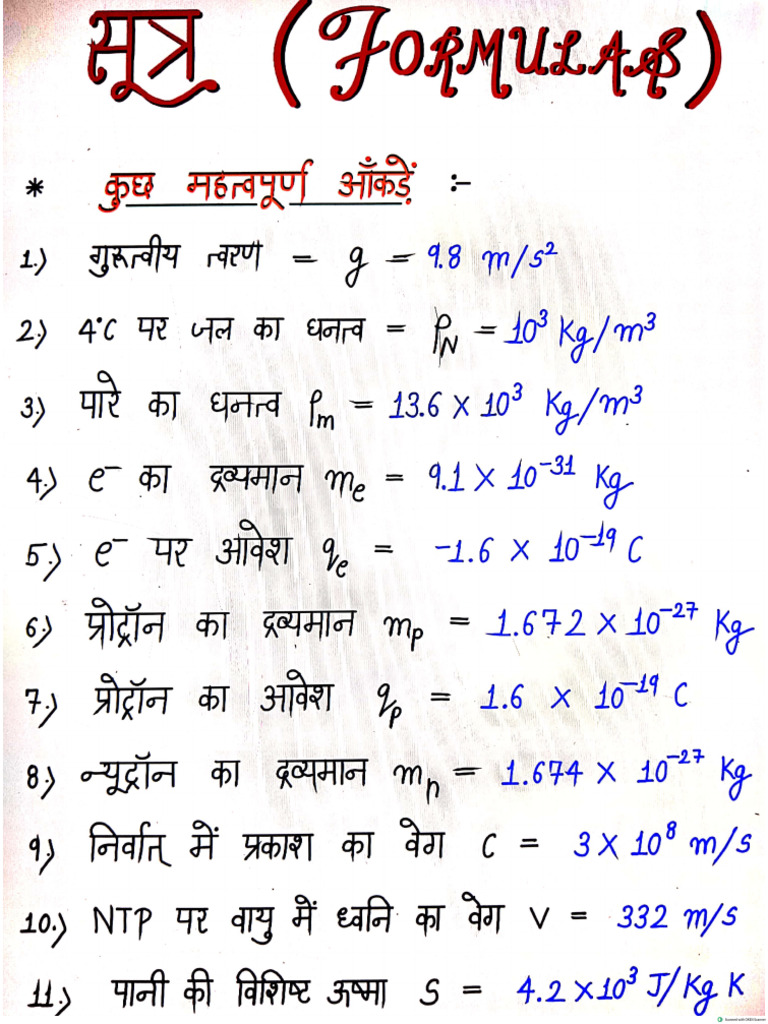 सूत्र (FORMULAS)
* कुछ महत्वपूर्ण आँकड़ें :-
1.) गुरूत्वीय त्वरण = g = 9.8 m/s²
2.) 4°C पर जल का घनत्व = ρN = 10³ Kg/m³
3.) पारे का घनत्व ρm = 13.6 × 10³ Kg/m³
4.) e⁻ का द्रव्यमान me = 9.1 × 10⁻³¹ Kg
5.) e⁻ पर आवेश qe = -1.6 × 10⁻¹⁹ C
6.) प्रोट्रॉन का द्रव्यमान mp = 1.672 × 10⁻²⁷ Kg
7.) प्रोट्रॉन का आवेश qp = 1.6 × 10⁻¹⁹ C
8.) न्यूट्रॉन का द्रव्यमान mn = 1.674 × 10⁻²⁷ Kg
9.) निर्वात् में प्रकाश का वेग C = 3 × 10⁸ m/s
10.) NTP पर वायु में ध्वनि का वेग V = 332 m/s
11.) पानी की विशिष्ट ऊष्मा S = 4.2 × 10³ J/Kg K